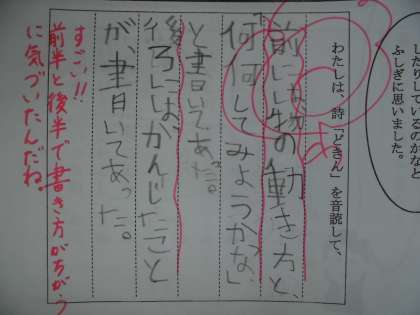 したりしているのかなと
ふしぎに思いました。
わたしは、詩「どきん」を音読して、
前には、物の動き方と、
何何してみようかな」
と書いてあった。
後ろには、かんじたこと
が、書いてあった。
すごい!!
前半と後半で書き方がちがう
に気づいたんだね。